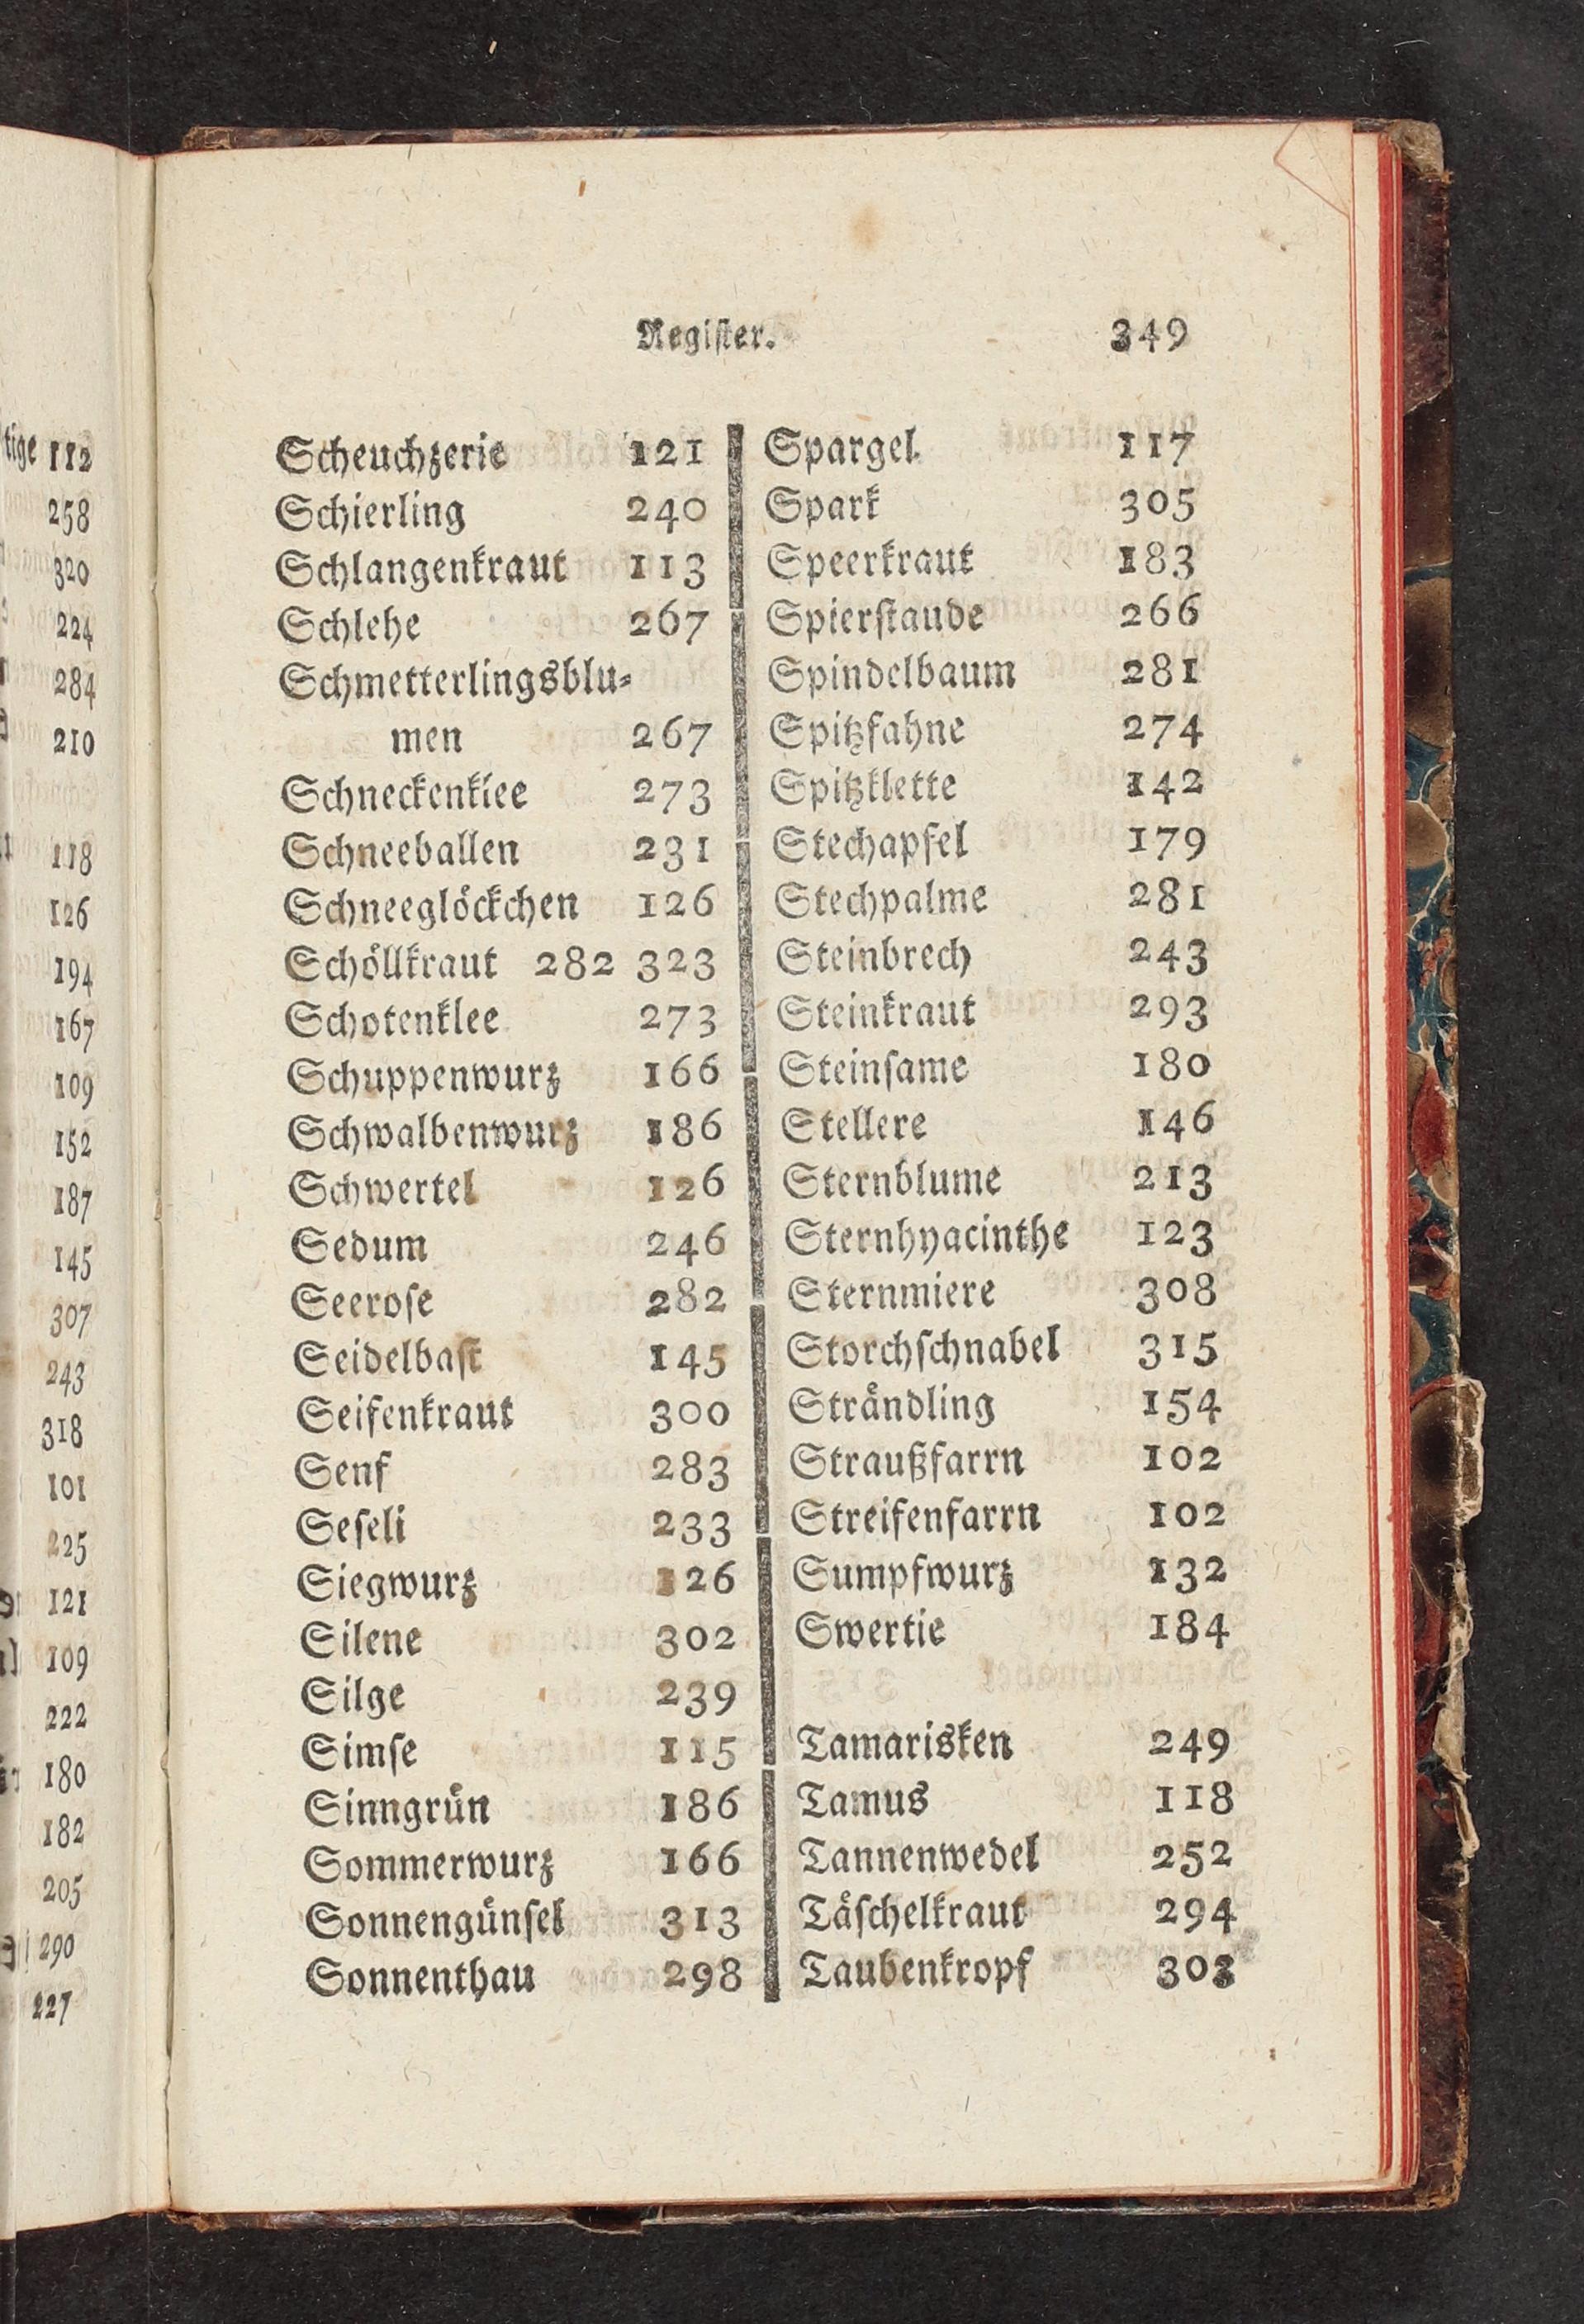 tige 112
258
320
224
284
210
118
126
194
167
109
152
187
145
307
243
318
101
225
121
109
222
180
182
205
290
227
Register. 349
Scheuchzerie 121
Schierling 240
Schlangenkraut 113
Schlehe 267
Schmetterlingsblu⸗
men 267
Schneckenklee 273
Schneeballen 231
Schneeglöckchen 126
Schöllkraut 282 323
Schotenklee 273
Schuppenwurz 166
Schwalbenwurz 186
Schwertel 126
Sedum 246
Seerose 282
Seidelbast 145
Seifenkraut 300
Senf 283
Seseli 233
Siegwurz 126
Silene 302
Silge 239
Simse 115
Sinngrün 186
Sommerwurz 166
Sonnengünsel 313
Sonnenthau 298
Spargel 117
Spark 305
Speerkraut 183
Spierstaude 266
Spindelbaum 281
Spitzfahne 274
Spitzklette 142
Stechapfel 179
Stechpalme 281
Steinbrech 243
Steinkraut 293
Steinsame 180
Stellere 146
Sternblume 213
Sternhyacinthe 123
Sternmiere 308
Storchschnabel 315
Strändling 154
Straußfarrn 102
Streifenfarrn 102
Sumpfwurz 132
Swertie 184
Tamarisken 249
Tamus 118
Tannenwedel 252
Täschelkraut 294
Taubenkropf